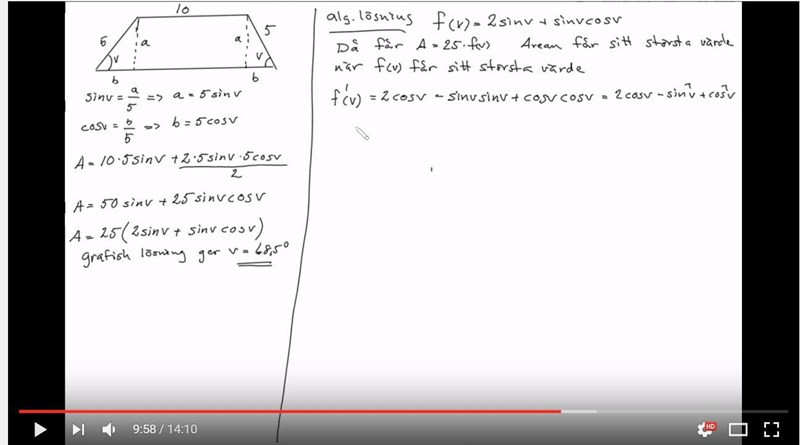 10
5 a a 5
v v
b b
sinv = a/5 => a = 5sinv
cosv = b/5 => b = 5cosv
A = 10·5sinv + 2·5sinv·5cosv/2
A = 50sinv + 25sinvcosv
A = 25(2sinv + sinvcosv)
grafish lösning ger v = 68,5°
alg. lösning f(v) = 2sinv + sinvcosv
Då får A = 25·f(v) Arean får sitt största värde
när f(v) får sitt största värde
f'(v) = 2cosv - sinvsinv + cosvcosv = 2cosv - sin²v + cos²v
9:58 / 14:10
HD